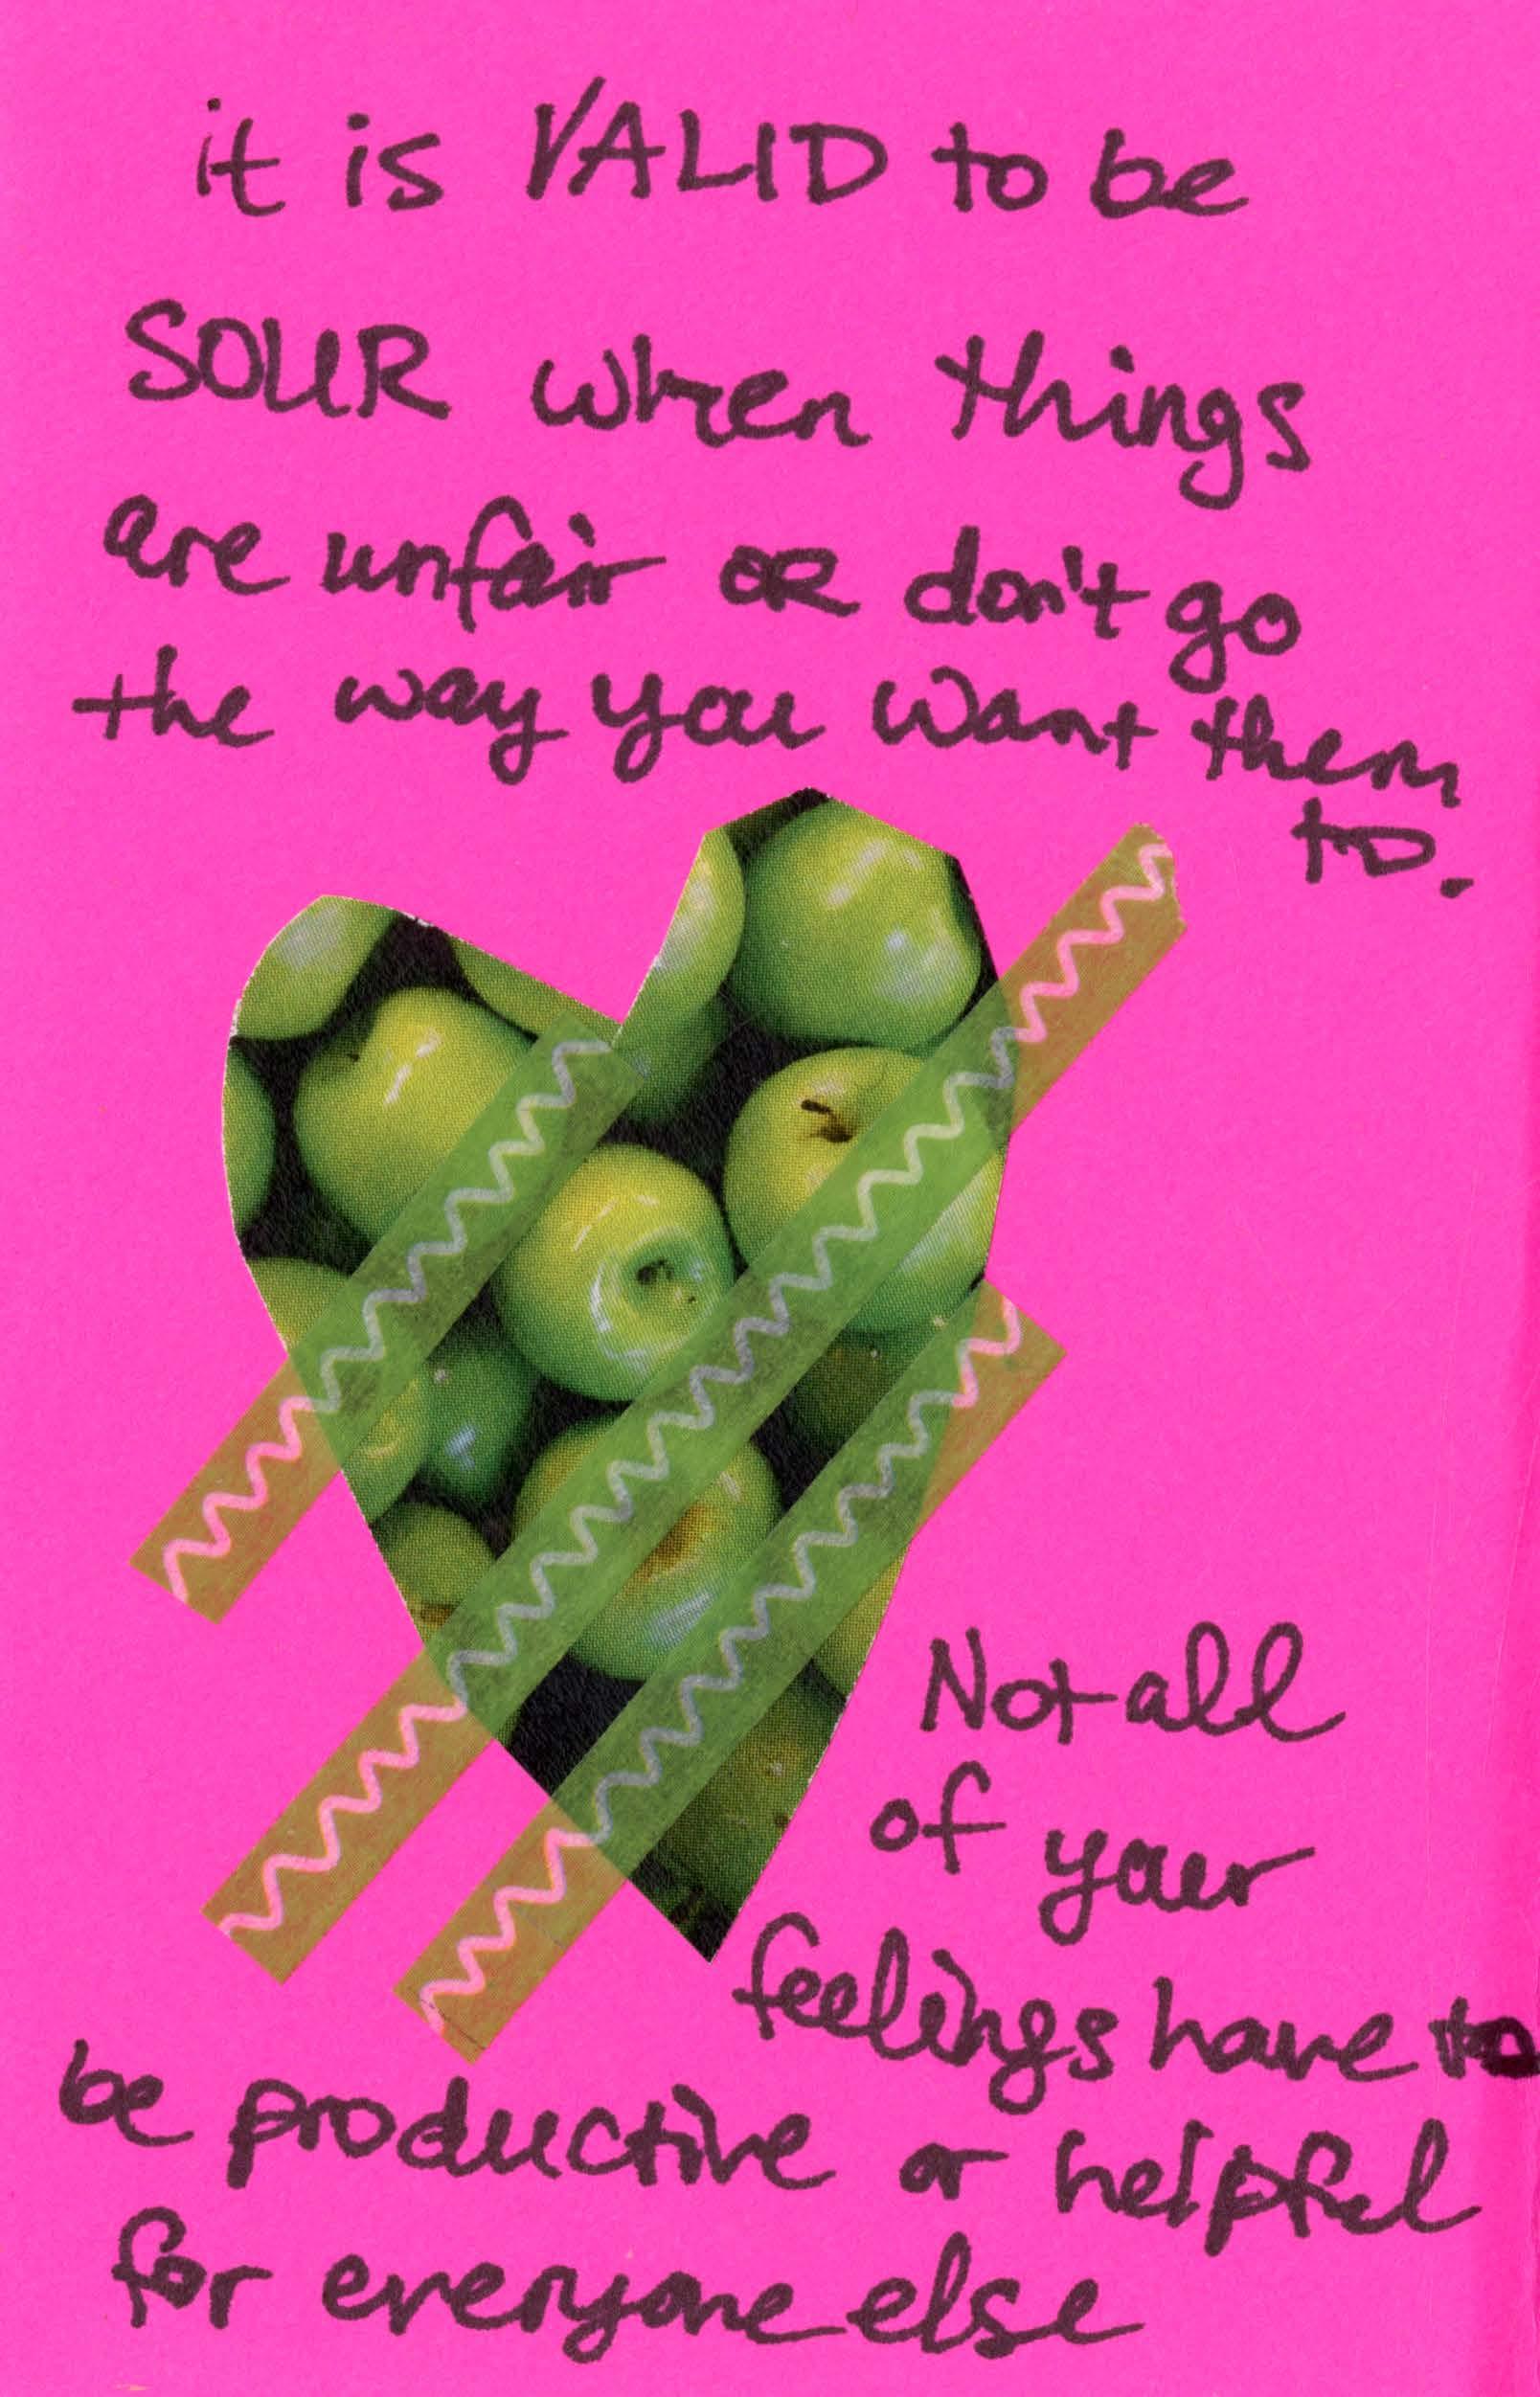 it is VALID to be
SOUR when things
are unfair OR don't go
the way you want them
to.
Not all
of your
feelings have to
be productive or helpful
for everyone else